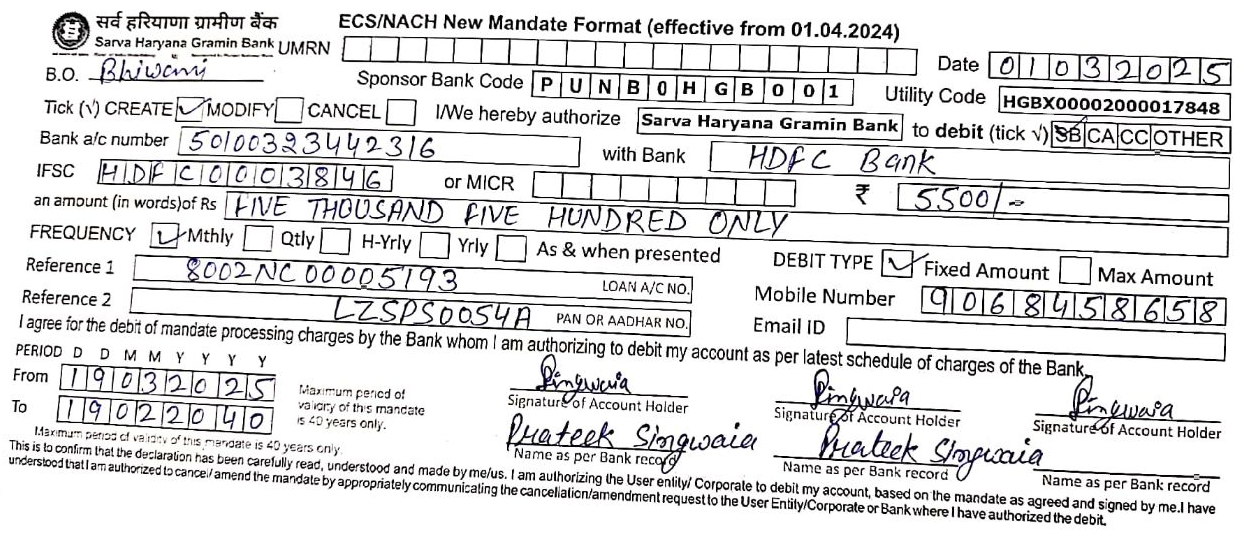 सर्व हरियाणा ग्रामीण बैंक
Sarva Haryana Gramin Bank
ECS/NACH New Mandate Format (effective from 01.04.2024)
UMRN
Date 01032025
B.O. Bhiwani
Sponsor Bank Code PUNB0HGB001
Utility Code HGBX00002000017848
Tick (√) CREATE ✓ MODIFY CANCEL I/We hereby authorize Sarva Haryana Gramin Bank to debit (tick √) SB CA CC OTHER
Bank a/c number 50100323442316 with Bank HDFC Bank
IFSC HDFC0003846 or MICR ₹ 5500/-
an amount (in words)of Rs FIVE THOUSAND FIVE HUNDRED ONLY
FREQUENCY ✓ Mthly Qtly H-Yrly Yrly As & when presented DEBIT TYPE ✓ Fixed Amount Max Amount
Reference 1 8002NC00005193 LOAN A/C NO. Mobile Number 9068458658
Reference 2 LZSPS0054A PAN OR AADHAR NO. Email ID
I agree for the debit of mandate processing charges by the Bank whom I am authorizing to debit my account as per latest schedule of charges of the Bank.
PERIOD D D M M Y Y Y Y
From 19032025
To 19022040
Maximum period of
validity of this mandate
is 40 years only.
Singwaia Singwaia Singwaia
Signature of Account Holder Signature of Account Holder Signature of Account Holder
Prateek Singwaia Prateek Singwaia
Name as per Bank record Name as per Bank record Name as per Bank record
Maximum period of validity of this mandate is 40 years only.
This is to confirm that the declaration has been carefully read, understood and made by me/us. I am authorizing the User entity/ Corporate to debit my account, based on the mandate as agreed and signed by me.I have
understood that I am authorized to cancel/ amend the mandate by appropriately communicating the cancellation/amendment request to the User Entity/Corporate or Bank where I have authorized the debit.